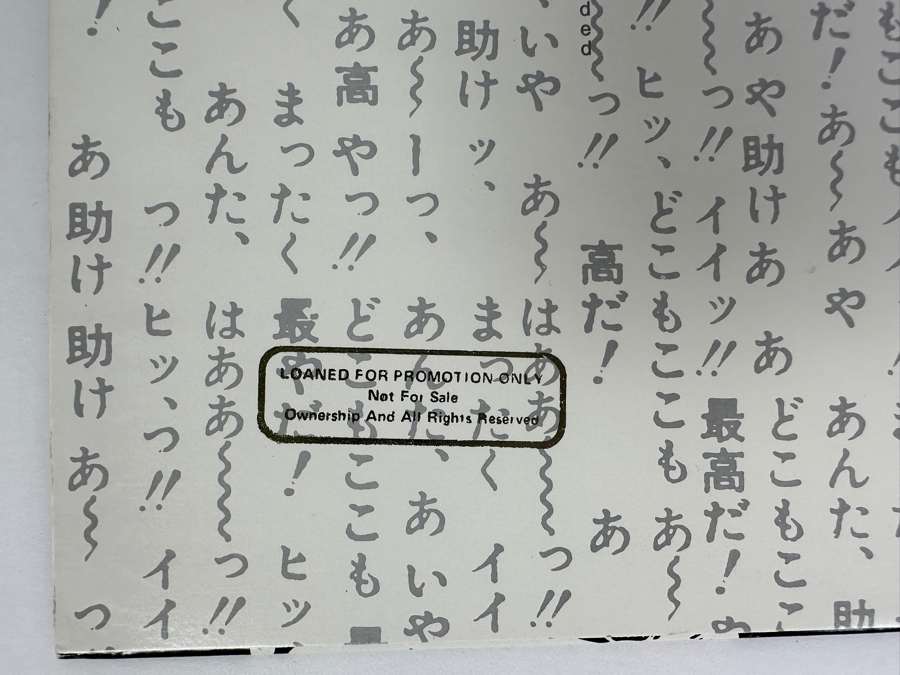 だ！あ〜あや あんた、助
あや助けあ あ どこもここ
〜っ!! イイッ!! 最高だ！や
!! ヒッ、どこもここも あ〜
ded
〜っ!! 高だ！ あ
、いや あ〜はああ〜っ!!
助けッ、 まったく イイ
あ〜ーっ、 あんた、あいや
あ高やっ!! どこもここも
く まったく 最やだ！ ヒッ、
あんた、 はああ〜っ!!
ここも っ!! ヒッ、っ!! イイ
！ あ助け助けあ〜 っ
LOANED FOR PROMOTION ONLY
Not For Sale
Ownership And All Rights Reserved